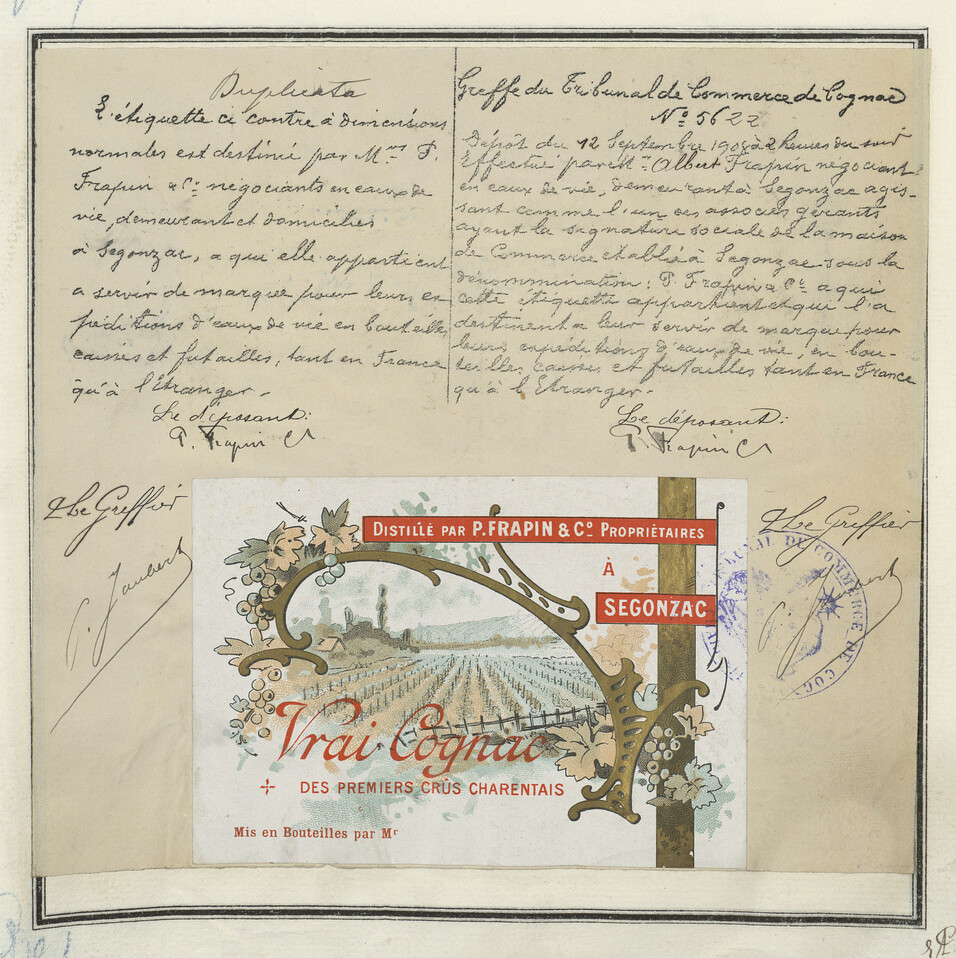 Duplicata
L'étiquette ci contre à dimensions
normales est destiné par Mrs P.
Frapin & Cie négociants en eaux de
vie, demeurant et domiciliés
à Segonzac, a qui elle appartient
a servir de marque pour leurs ex
péditions d'eaux de vie en bouteille,
caisses et futailles, tant en France
qu'à l'étranger.
Le déposant:
P. Frapin Co
Greffe du Tribunal de Commerce de Cognac
No 5622
Dépôt du 12 Septembre 1908 à 2 heures du soir
Effectué par Mr Albert Frapin négociant
en eaux de vie, demeurant à Segonzac agis-
sant comme l'un des associés gérants
ayant la signature sociale de la maison
de Commerce établie à Segonzac sous la
dénommination: P. Frapin & Co a qui
cette étiquette appartient et qui l'a
destinent a leur servir de marque pour
leurs expéditions d'eaux de vie, en bou-
teilles caisses et futailles tant en France
qu'à l'Etranger.
Le déposant:
P. Frapin Co
Le Greffier
Jaubert
DISTILLÉ PAR P. FRAPIN & Co PROPRIÉTAIRES
À
SEGONZAC
Vrai Cognac
DES PREMIERS CRÛS CHARENTAIS
Mis en Bouteilles par Mr
Le Greffier
Jaubert
TRIBUNAL DE COMMERCE DE COGNAC